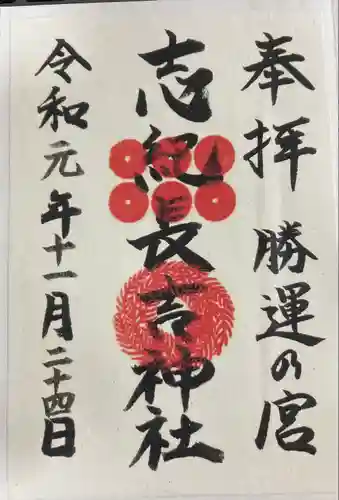 奉拝 勝運の宮
志紀長吉神社
令和元年十一月二十四日